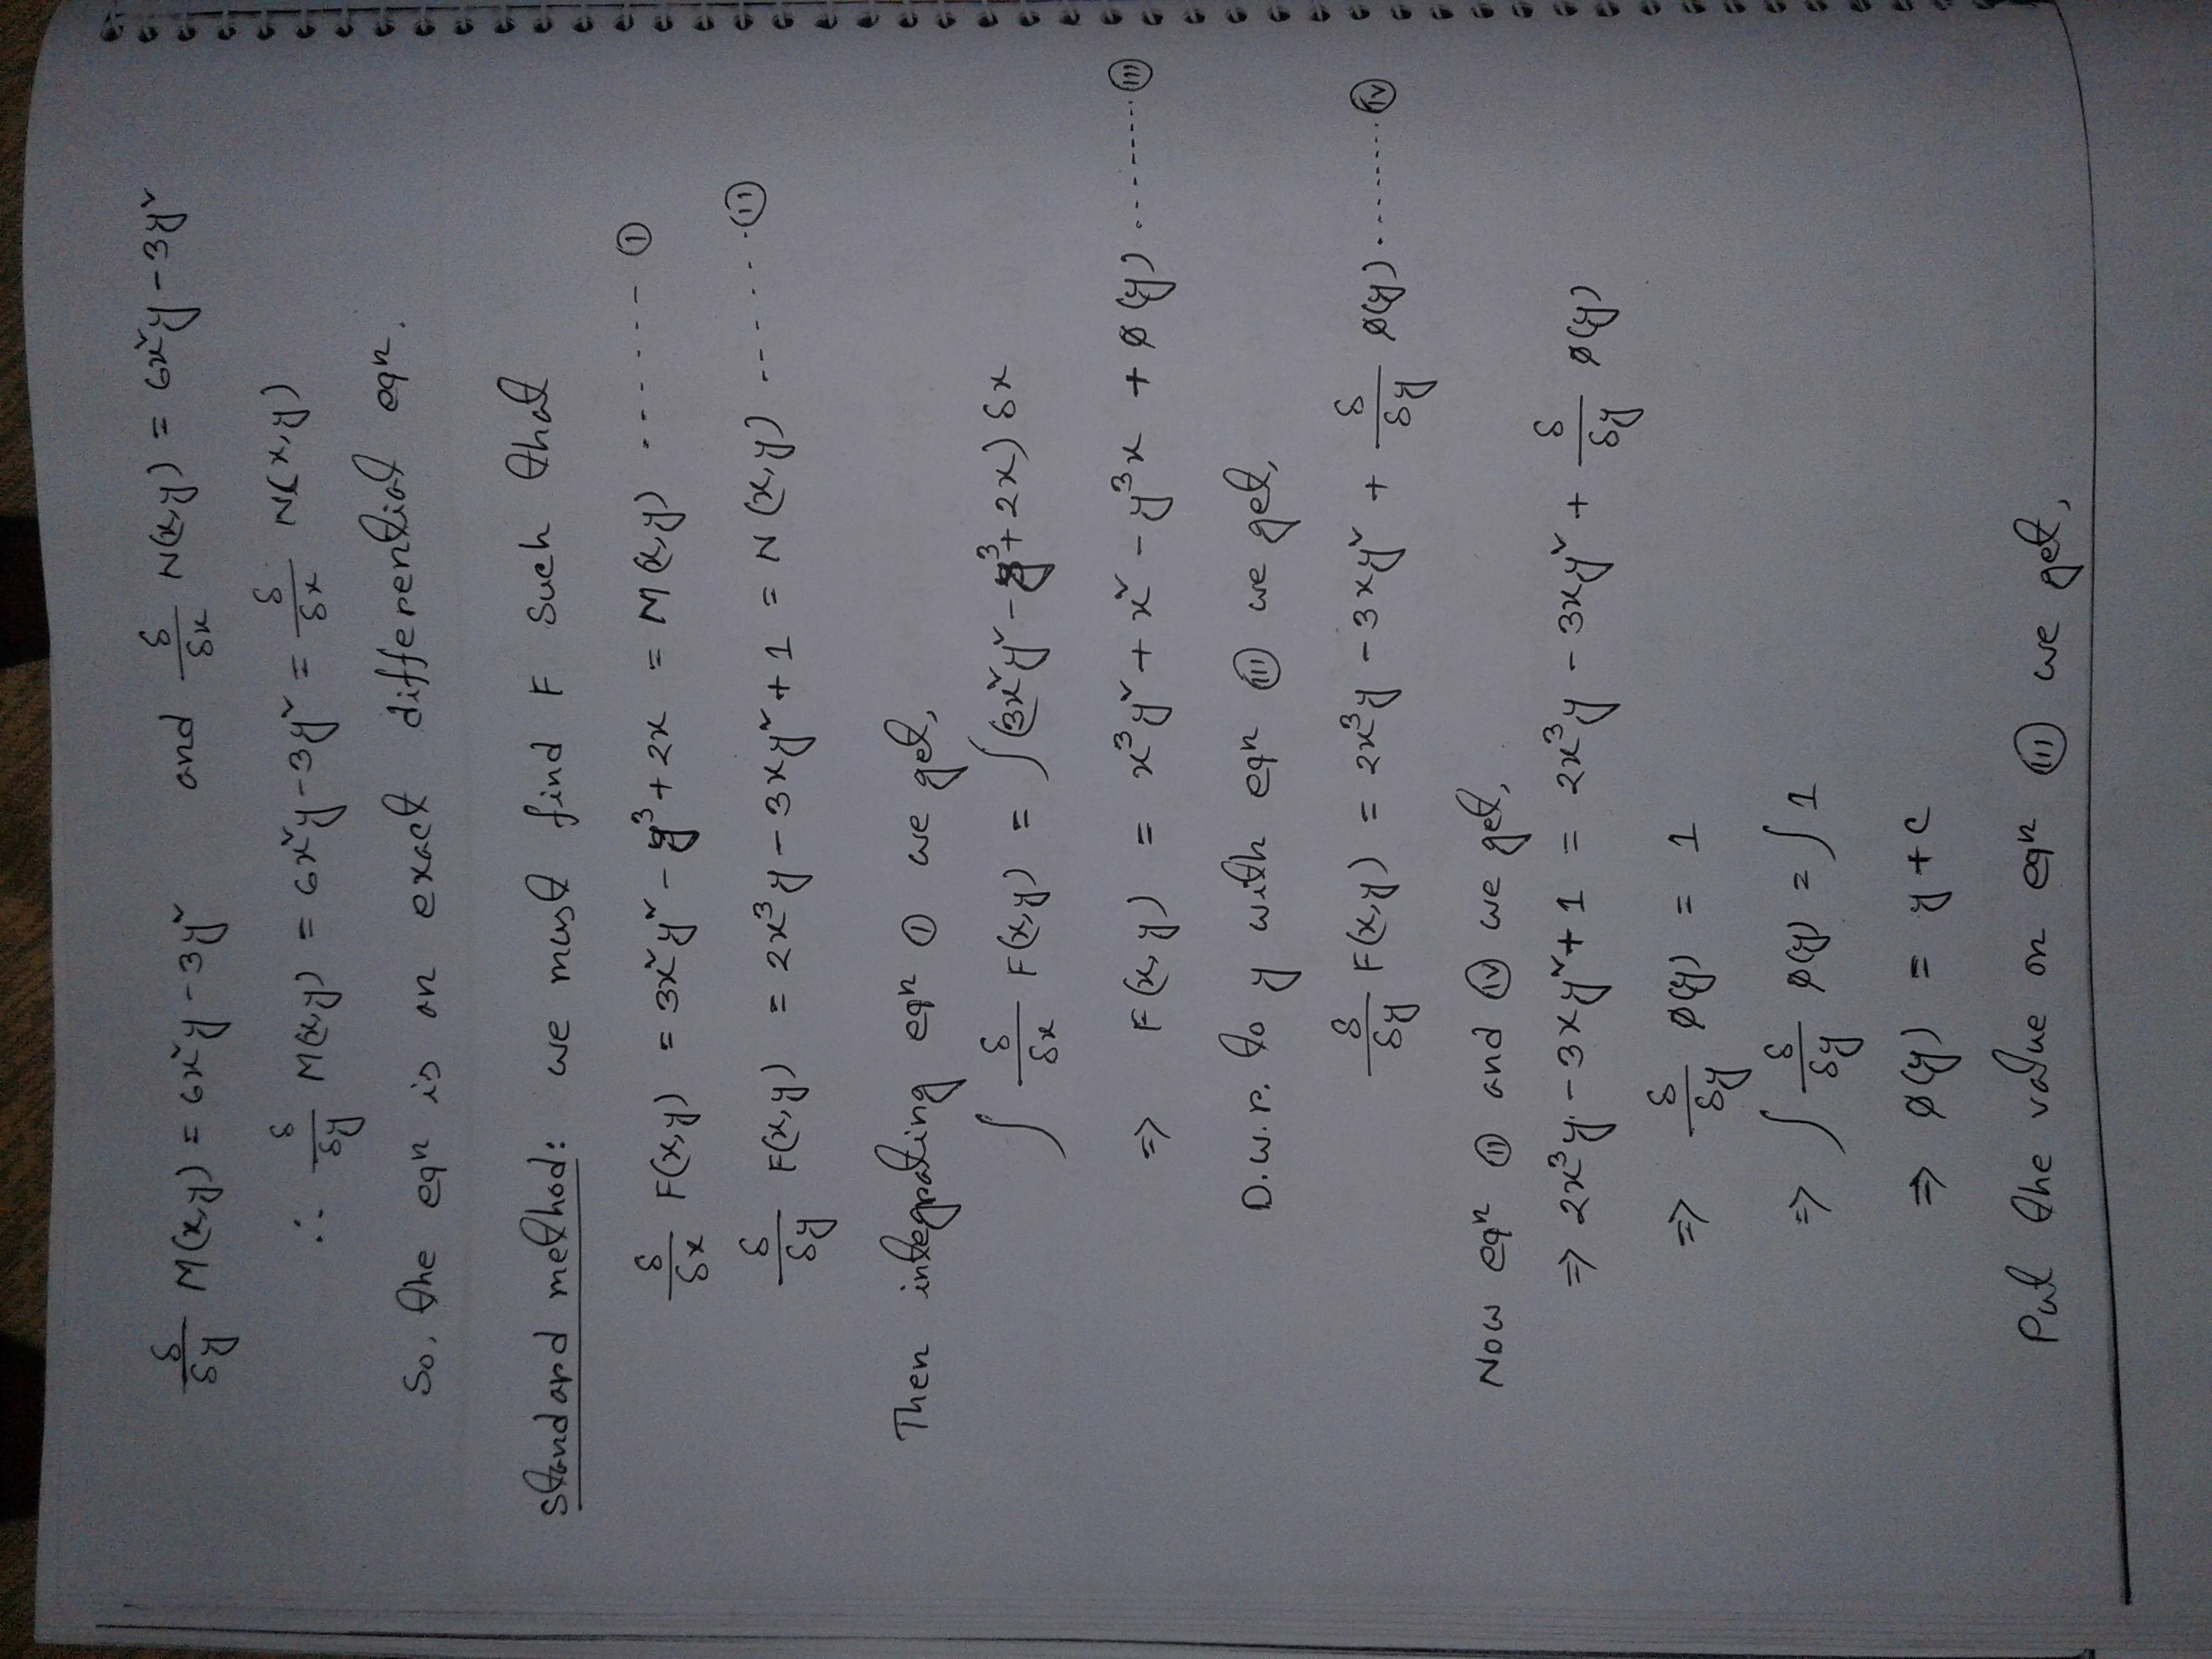 δ/δy M(x,y) = 6x²y - 3y² and δ/δx N(x,y) = 6x²y - 3y²
∴ δ/δy M(x,y) = 6x²y - 3y² = δ/δx N(x,y)
So, the eqⁿ is an exact differential eqⁿ.
Standard method: we must find F such that
δ/δx F(x,y) = 3x²y² - y³ + 2x = M(x,y) ------- ①
δ/δy F(x,y) = 2x³y - 3xy² + 1 = N(x,y) ------- ⑪
Then integrating eqⁿ ① we get,
∫ δ/δx F(x,y) = ∫(3x²y² - y³ + 2x) δx
⇒ F(x,y) = x³y² + x² - y³x + ø(y) -------- (iii)
D.w.r. to y with eqⁿ (iii) we get,
δ/δy F(x,y) = 2x³y - 3xy² + δ/δy ø(y) -------- (iv)
Now eqⁿ (ii) and (iv) we get,
⇒ 2x³y - 3xy² + 1 = 2x³y - 3xy² + δ/δy ø(y)
⇒ δ/δy ø(y) = 1
⇒ ∫ δ/δy ø(y) = ∫ 1
⇒ ø(y) = y + c
Put the value on eqⁿ (iii) we get,